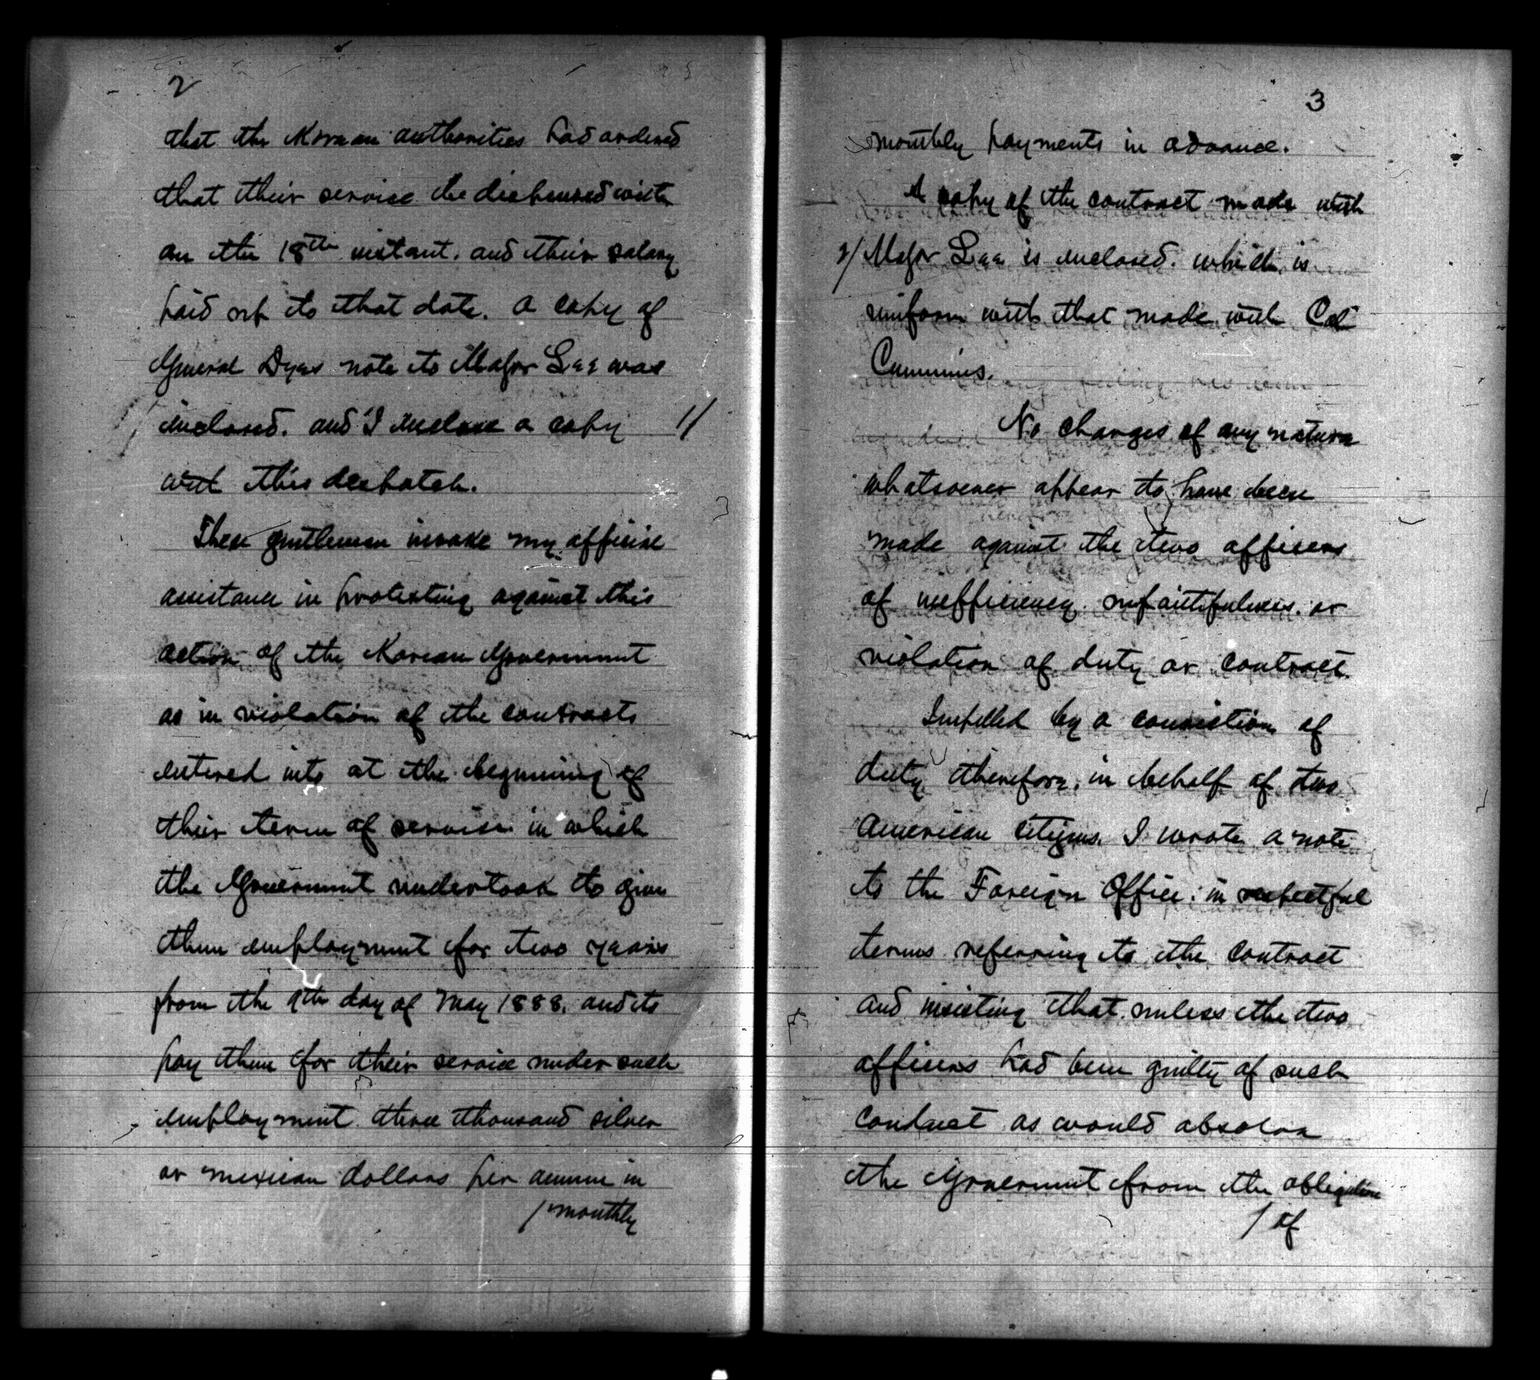 2
that the Korean authorities had ordered
that their service be dispensed with
on the 18th instant. and their salary
paid up to that date. A copy of
General Dyes note to Major Lee was
inclosed. and I inclose a copy 1/
with this despatch.
These gentlemen invoke my official
assistance in protesting against this
action of the Korean Government
as in violation of the contracts
entered into at the beginning of
their term of service in which
the Government undertook to give
them employment for two years
from the 9th day of May 1888. and to
pay them for their service under such
employment three thousand silver
or mexican dollars per annum in
/ monthly
3
monthly payments in advance.
A copy of the contract made with
2/ Major Lee is inclosed. which is
uniform with that made with Col
Cummins.
No charges of any nature
whatsoever appear to have been
made against the two officers
of inefficiency. unfaithfulness. or
violation of duty or contract.
Impelled by a conviction of
duty therefore, in behalf of two
American citizens. I wrote a note
to the Foreign Office: in respectful
terms referring to the contract
and insisting that unless the two
officers had been guilty of such
conduct as would absolve
the Government from the obligation
/ of